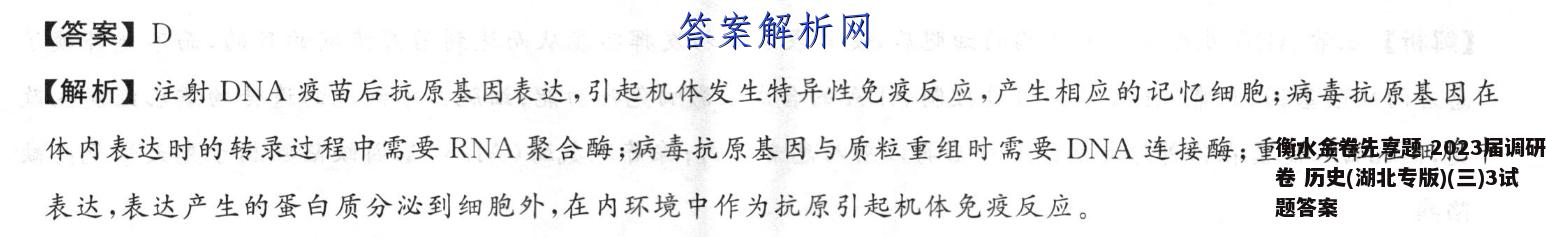 【答案】D
答案解析网
【解析】注射DNA疫苗后抗原基因表达,引起机体发生特异性免疫反应,产生相应的记忆细胞;病毒抗原基因在
体内表达时的转录过程中需要RNA聚合酶;病毒抗原基因与质粒重组时需要DNA连接酶;重
表达,表达产生的蛋白质分泌到细胞外,在内环境中作为抗原引起机体免疫反应。
衡水金卷先享题 2023届调研
卷 历史(湖北专版)(三)3试
题答案